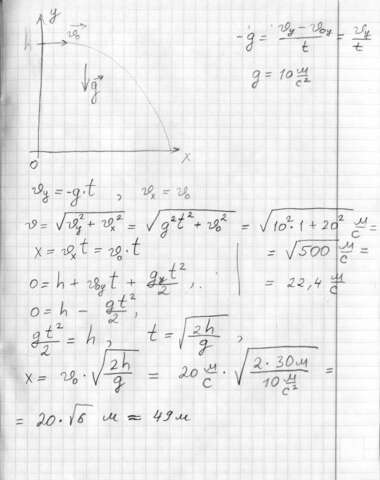 y
h
v⃗₀
g⃗
0
x
-g = (v_y - v_0y)/t = v_y/t
g = 10 м/с²
v_y = -g·t , v_x = v₀
v = √(v_y² + v_x²) = √(g²t² + v₀²) = √(10²·1 + 20²) м/с =
x = v_x t = v₀·t
= √500 м/с =
0 = h + v_0y t + g_y t²/2 ,
= 22,4 м/с
0 = h - gt²/2 ,
gt²/2 = h , t = √(2h/g) ,
x = v₀·√(2h/g) = 20 м/с · √(2·30м / 10 м/с²) =
= 20·√6 м ≈ 49м